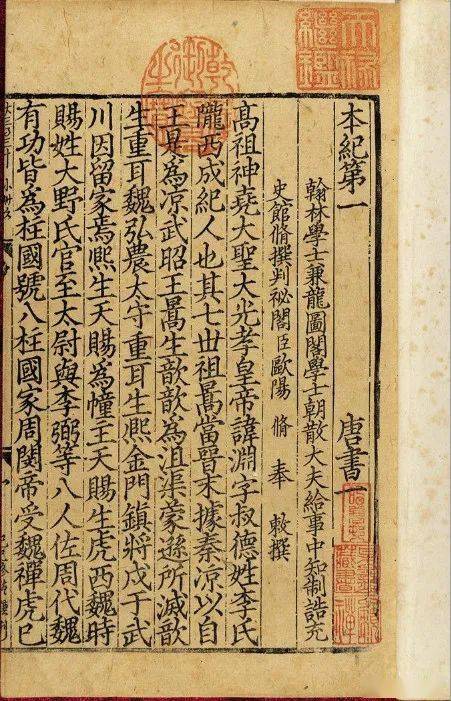 本紀第一 唐書一
翰林學士兼龍圖閣學士朝散大夫給事中知制誥充
史館脩撰判祕閣臣歐陽 脩 奉 敕撰
髙祖神堯大聖大光孝皇帝諱淵字叔德姓李氏
隴西成紀人也其七世祖暠當晉末據秦涼以自
王是為涼武昭王暠生歆歆為沮渠蒙遜所滅歆
生重耳魏弘農太守重耳生熙金門鎮將戍于武
川因留家焉熙生天賜為幢主天賜生虎西魏時
賜姓大野氏官至太尉與李弼等八人佐周代魏
有功皆為柱國號八柱國家周閔帝受魏禪虎已
天祿繼鑑
乾隆御覽之寶